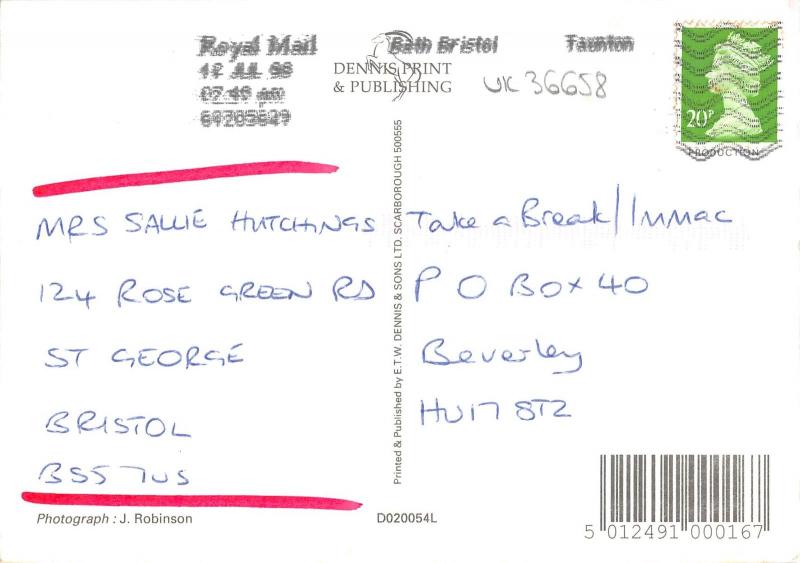 Royal Mail
Bath Bristol
Taunton
DENNIS PRINT
& PUBLISHING
UK 36658
20P
PRODUCTION
MRS SALLIE HUTCHINGS
124 ROSE GREEN RD
ST GEORGE
BRISTOL
BS5 7US
Take a Break/Immac
P O Box 40
Beverley
HU17 8TZ
Printed & Published by E.T.W. DENNIS & SONS LTD. SCARBOROUGH 500555
Photograph : J. Robinson
D020054L
5 012491 000167